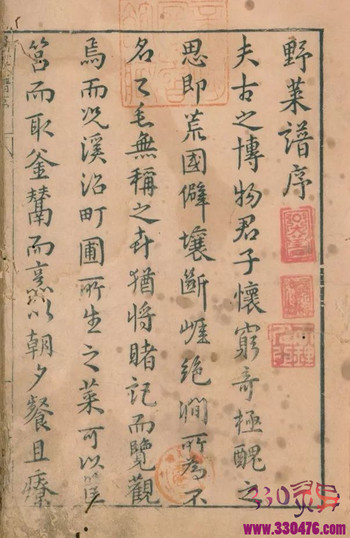 野菜譜序
夫古之博物君子懷窮奇極醜之
思即荒國僻壤斷崕絕澗所為不
名之毛無稱之卉猶將睹記而覽觀
焉而況溪沼町圃所生之菜可以筐
筥而取釜鬵而烹以朝夕餐且療
330灵异
www.330476.com